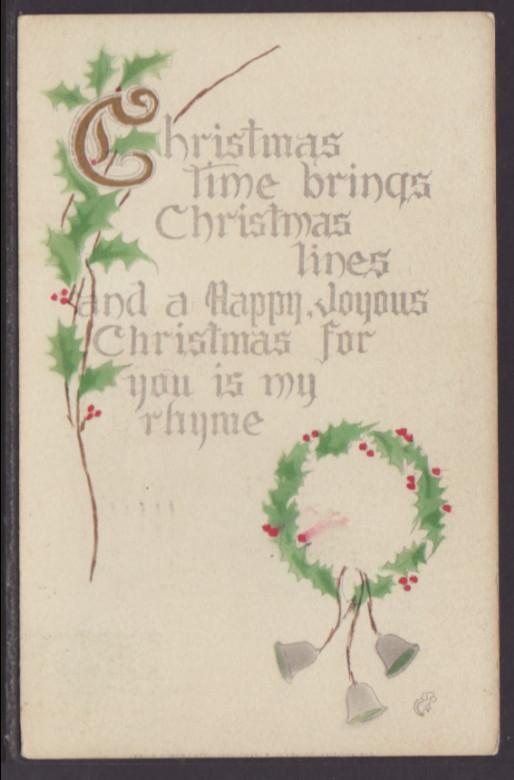 Christmas
time brings
Christmas
lines
and a Happy, Joyous
Christmas for
you is my
rhyme